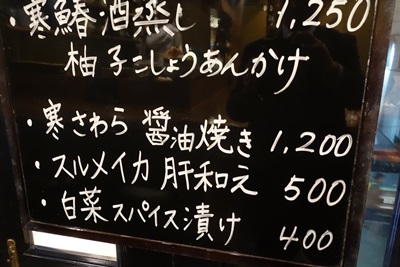 ・寒鰆酒蒸し 1,250
柚子こしょうあんかけ
・寒さわら 醤油焼き 1,200
・スルメイカ 肝和え 500
・白菜スパイス漬け 400